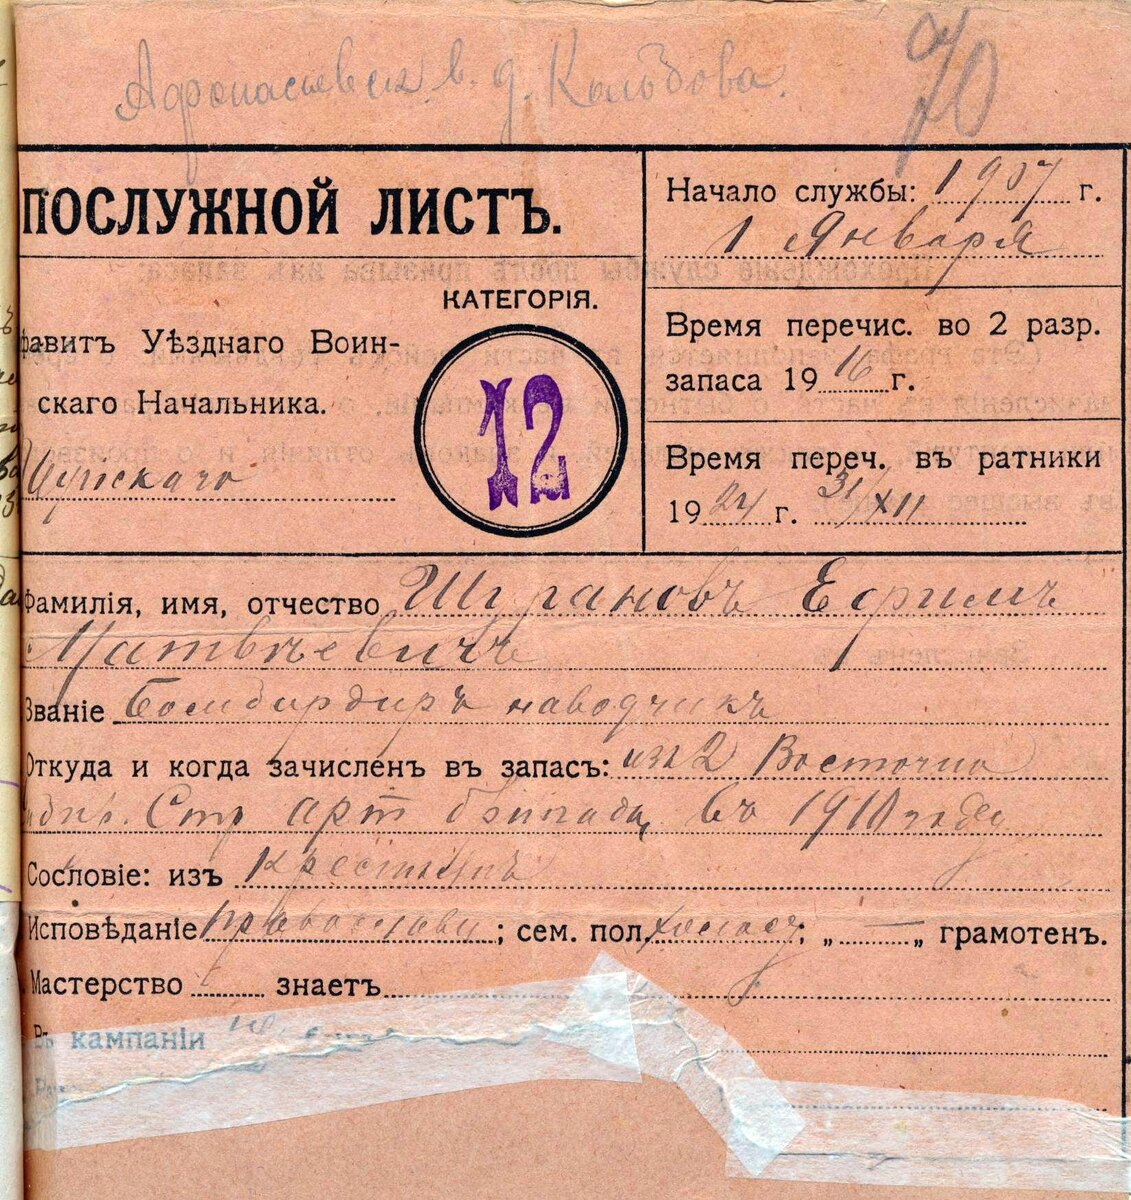 Афонасьевск. в. д. Кальдова.
70
ПОСЛУЖНОЙ ЛИСТЪ.
КАТЕГОРІЯ.
12
фавитъ Уѣзднаго Воин-
скаго Начальника.
Начало службы: 1907 г.
1 Января
Время перечис. во 2 разр.
запаса 1916 г.
Время переч. въ ратники
1924 г. 31/XII
Фамилія, имя, отчество Шурановъ Ефимъ
Матвѣевичъ
Званіе Бомбардиръ наводчикъ
Откуда и когда зачисленъ въ запасъ: изъ 2 Восточно
Сибир. Стр арт бригады въ 1910 году
Сословіе: изъ крестьянъ
Исповѣданіе православн; сем. пол. холост; „ — „ грамотенъ.
Мастерство знаетъ
Въ кампаніи